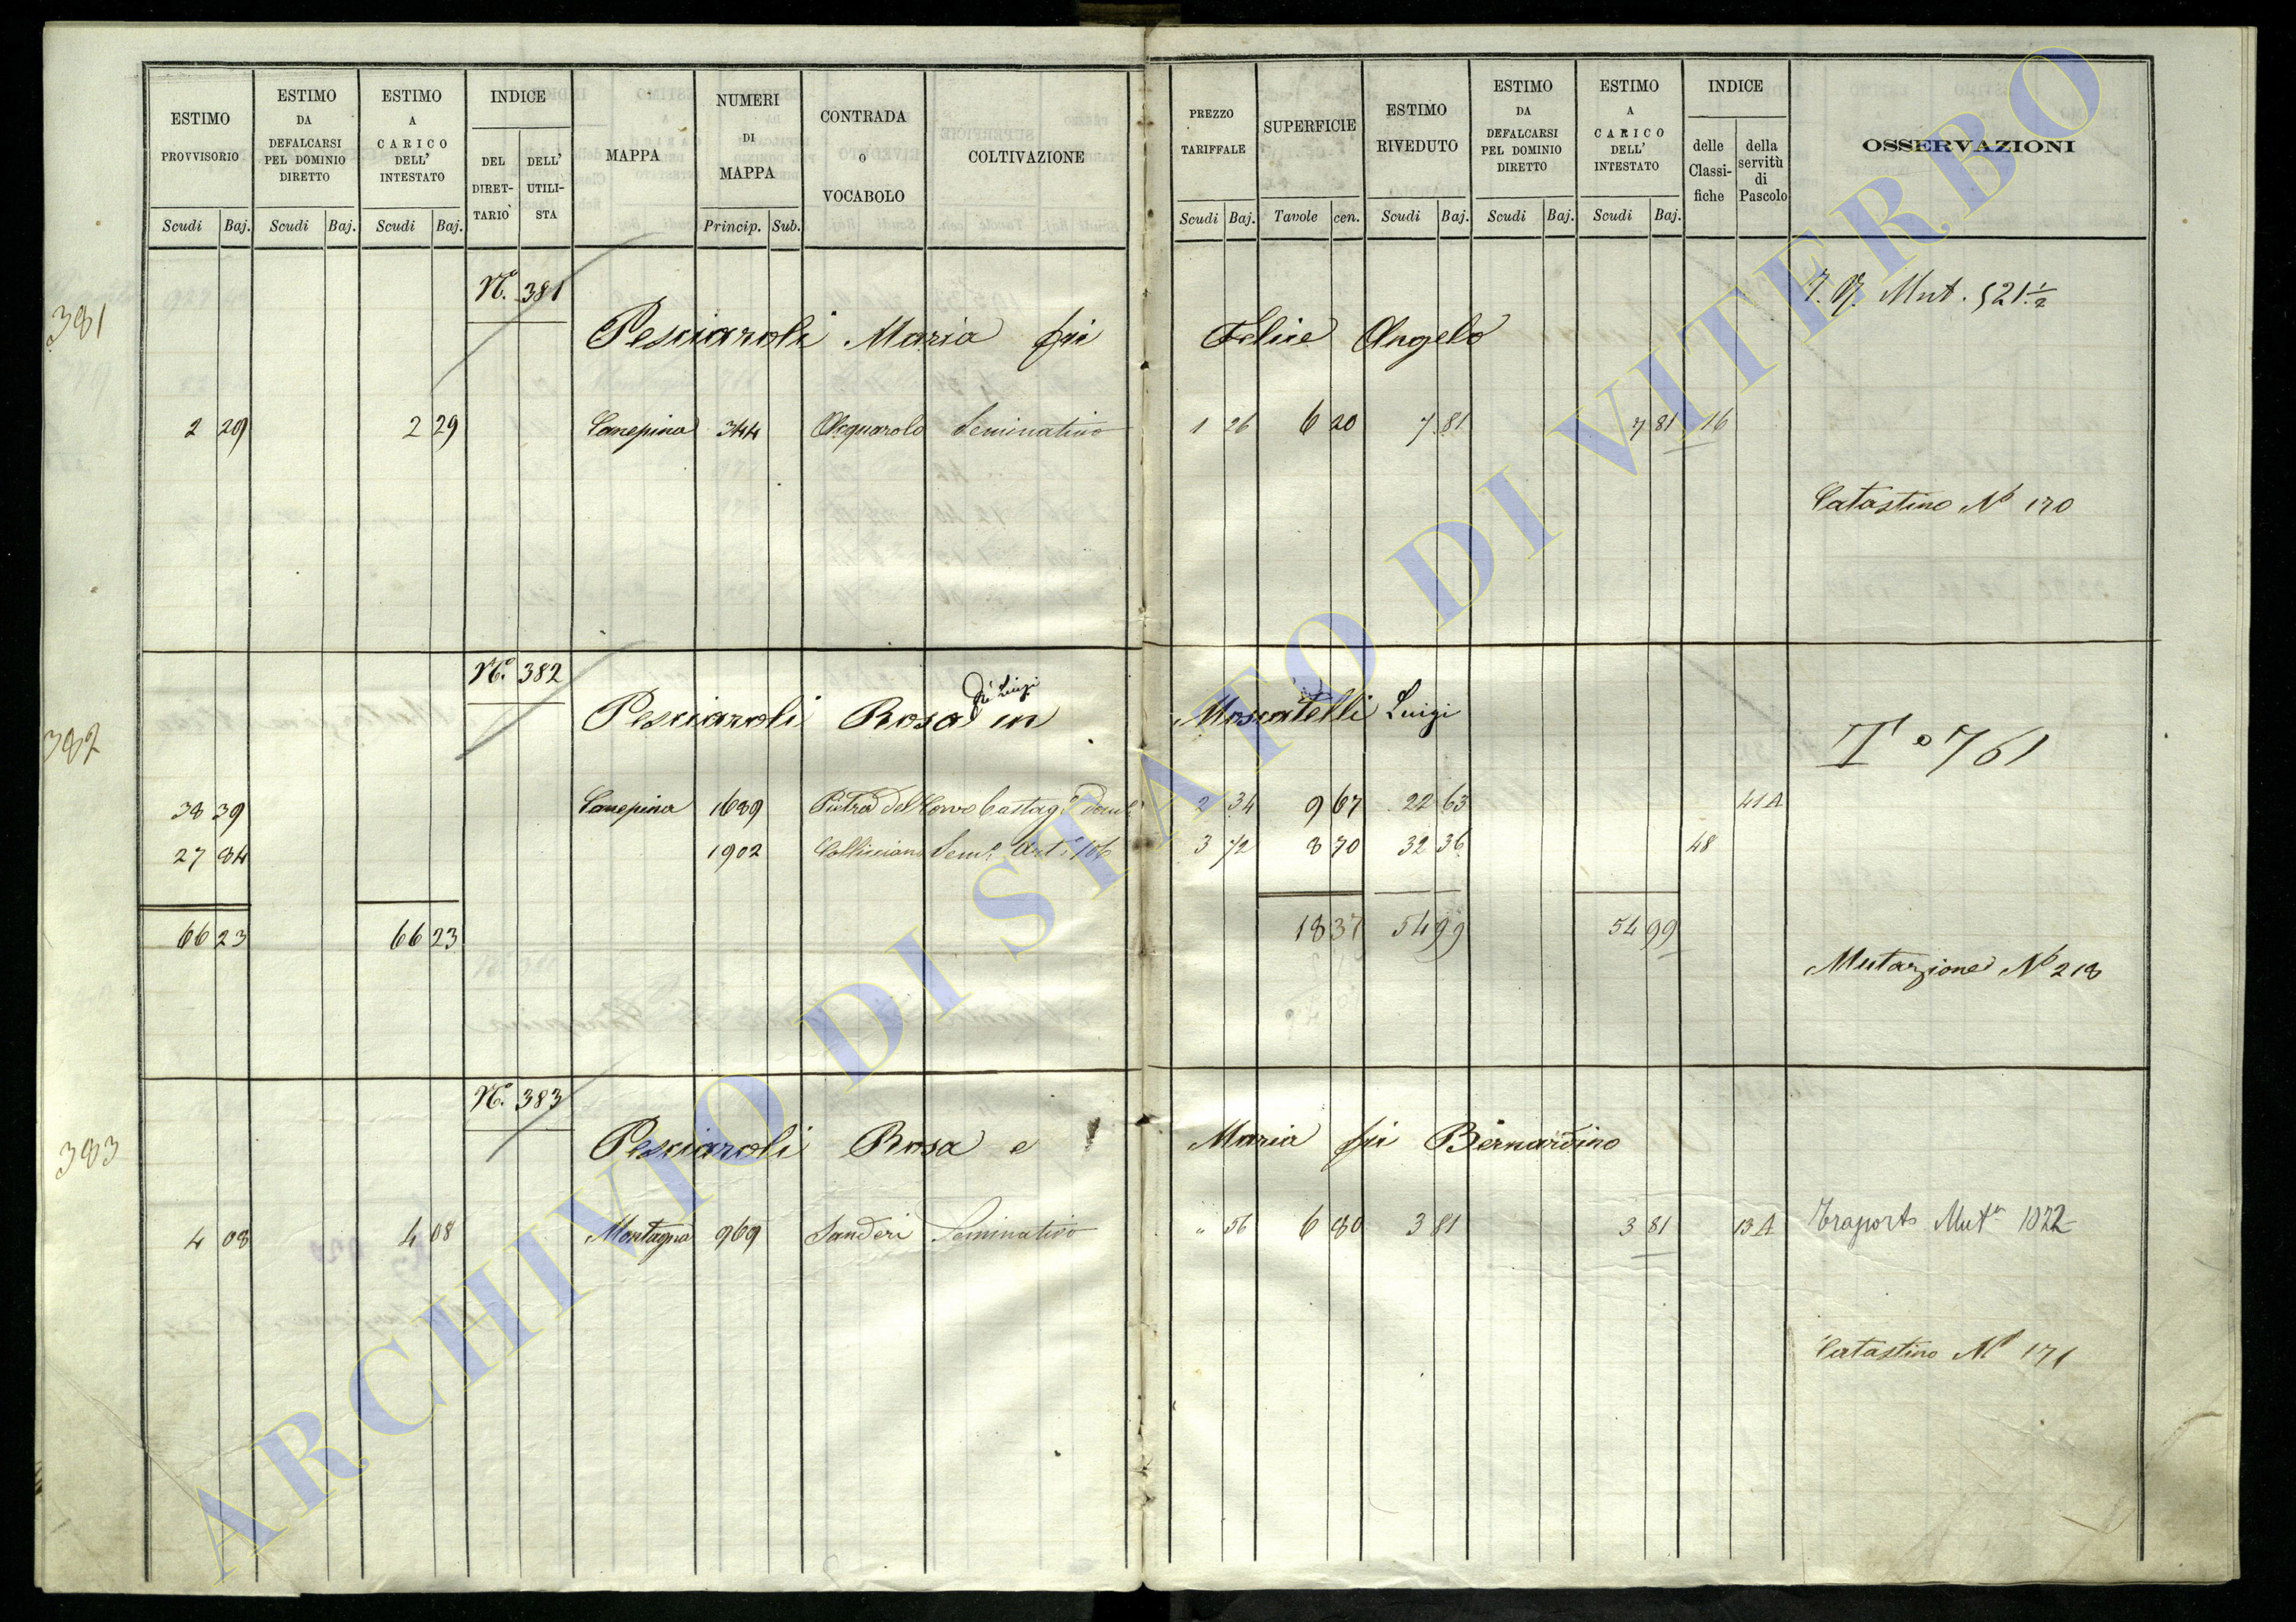 ESTIMO PROVVISORIO | ESTIMO DA DEFALCARSI PEL DOMINIO DIRETTO | ESTIMO A CARICO DELL' INTESTATO | INDICE | MAPPA | NUMERI DI MAPPA | CONTRADA O VOCABOLO | COLTIVAZIONE | PREZZO TARIFFALE | SUPERFICIE | ESTIMO RIVEDUTO | ESTIMO DA DEFALCARSI PEL DOMINIO DIRETTO | ESTIMO A CARICO DELL' INTESTATO | INDICE | OSSERVAZIONI
DEL DIRETTARIO | DELL' UTILISTA | delle Classifiche | della servitù di Pascolo
Scudi Baj. Scudi Baj. Scudi Baj. Princip. Sub. Scudi Baj. Tavole cen. Scudi Baj. Scudi Baj. Scudi Baj.
381 N.° 381 Mut. 521 ½
Pesciaroli Maria fu Felice Angelo
2 29 2 29 Canepina 344 Acquarolo Seminativo 1 26 6 20 7 81 7 81 16
Catastino N° 170
382 N.° 382
di Luigi
Pesciaroli Rosa in Moscatelli Luigi
T° 761
38 39 Canepina 1689 Pietra del Corvo Castag.° dom.° 2 34 9 67 22 63 41A
27 84 1902 Colliciano Sem.° Art.° 106 3 72 8 70 32 36 48
66 23 66 23 18 37 54 99 54 99
Mutazione N° 218
383 N.° 383
Pesciaroli Rosa e Maria fu Bernardino
4 08 4 08 Montagna 969 Sanderi Seminativo " 56 6 80 3 81 3 81 13A Traporto Mut.ª 1022
Catastino N° 171
ARCHIVIO DI STATO DI VITERBO